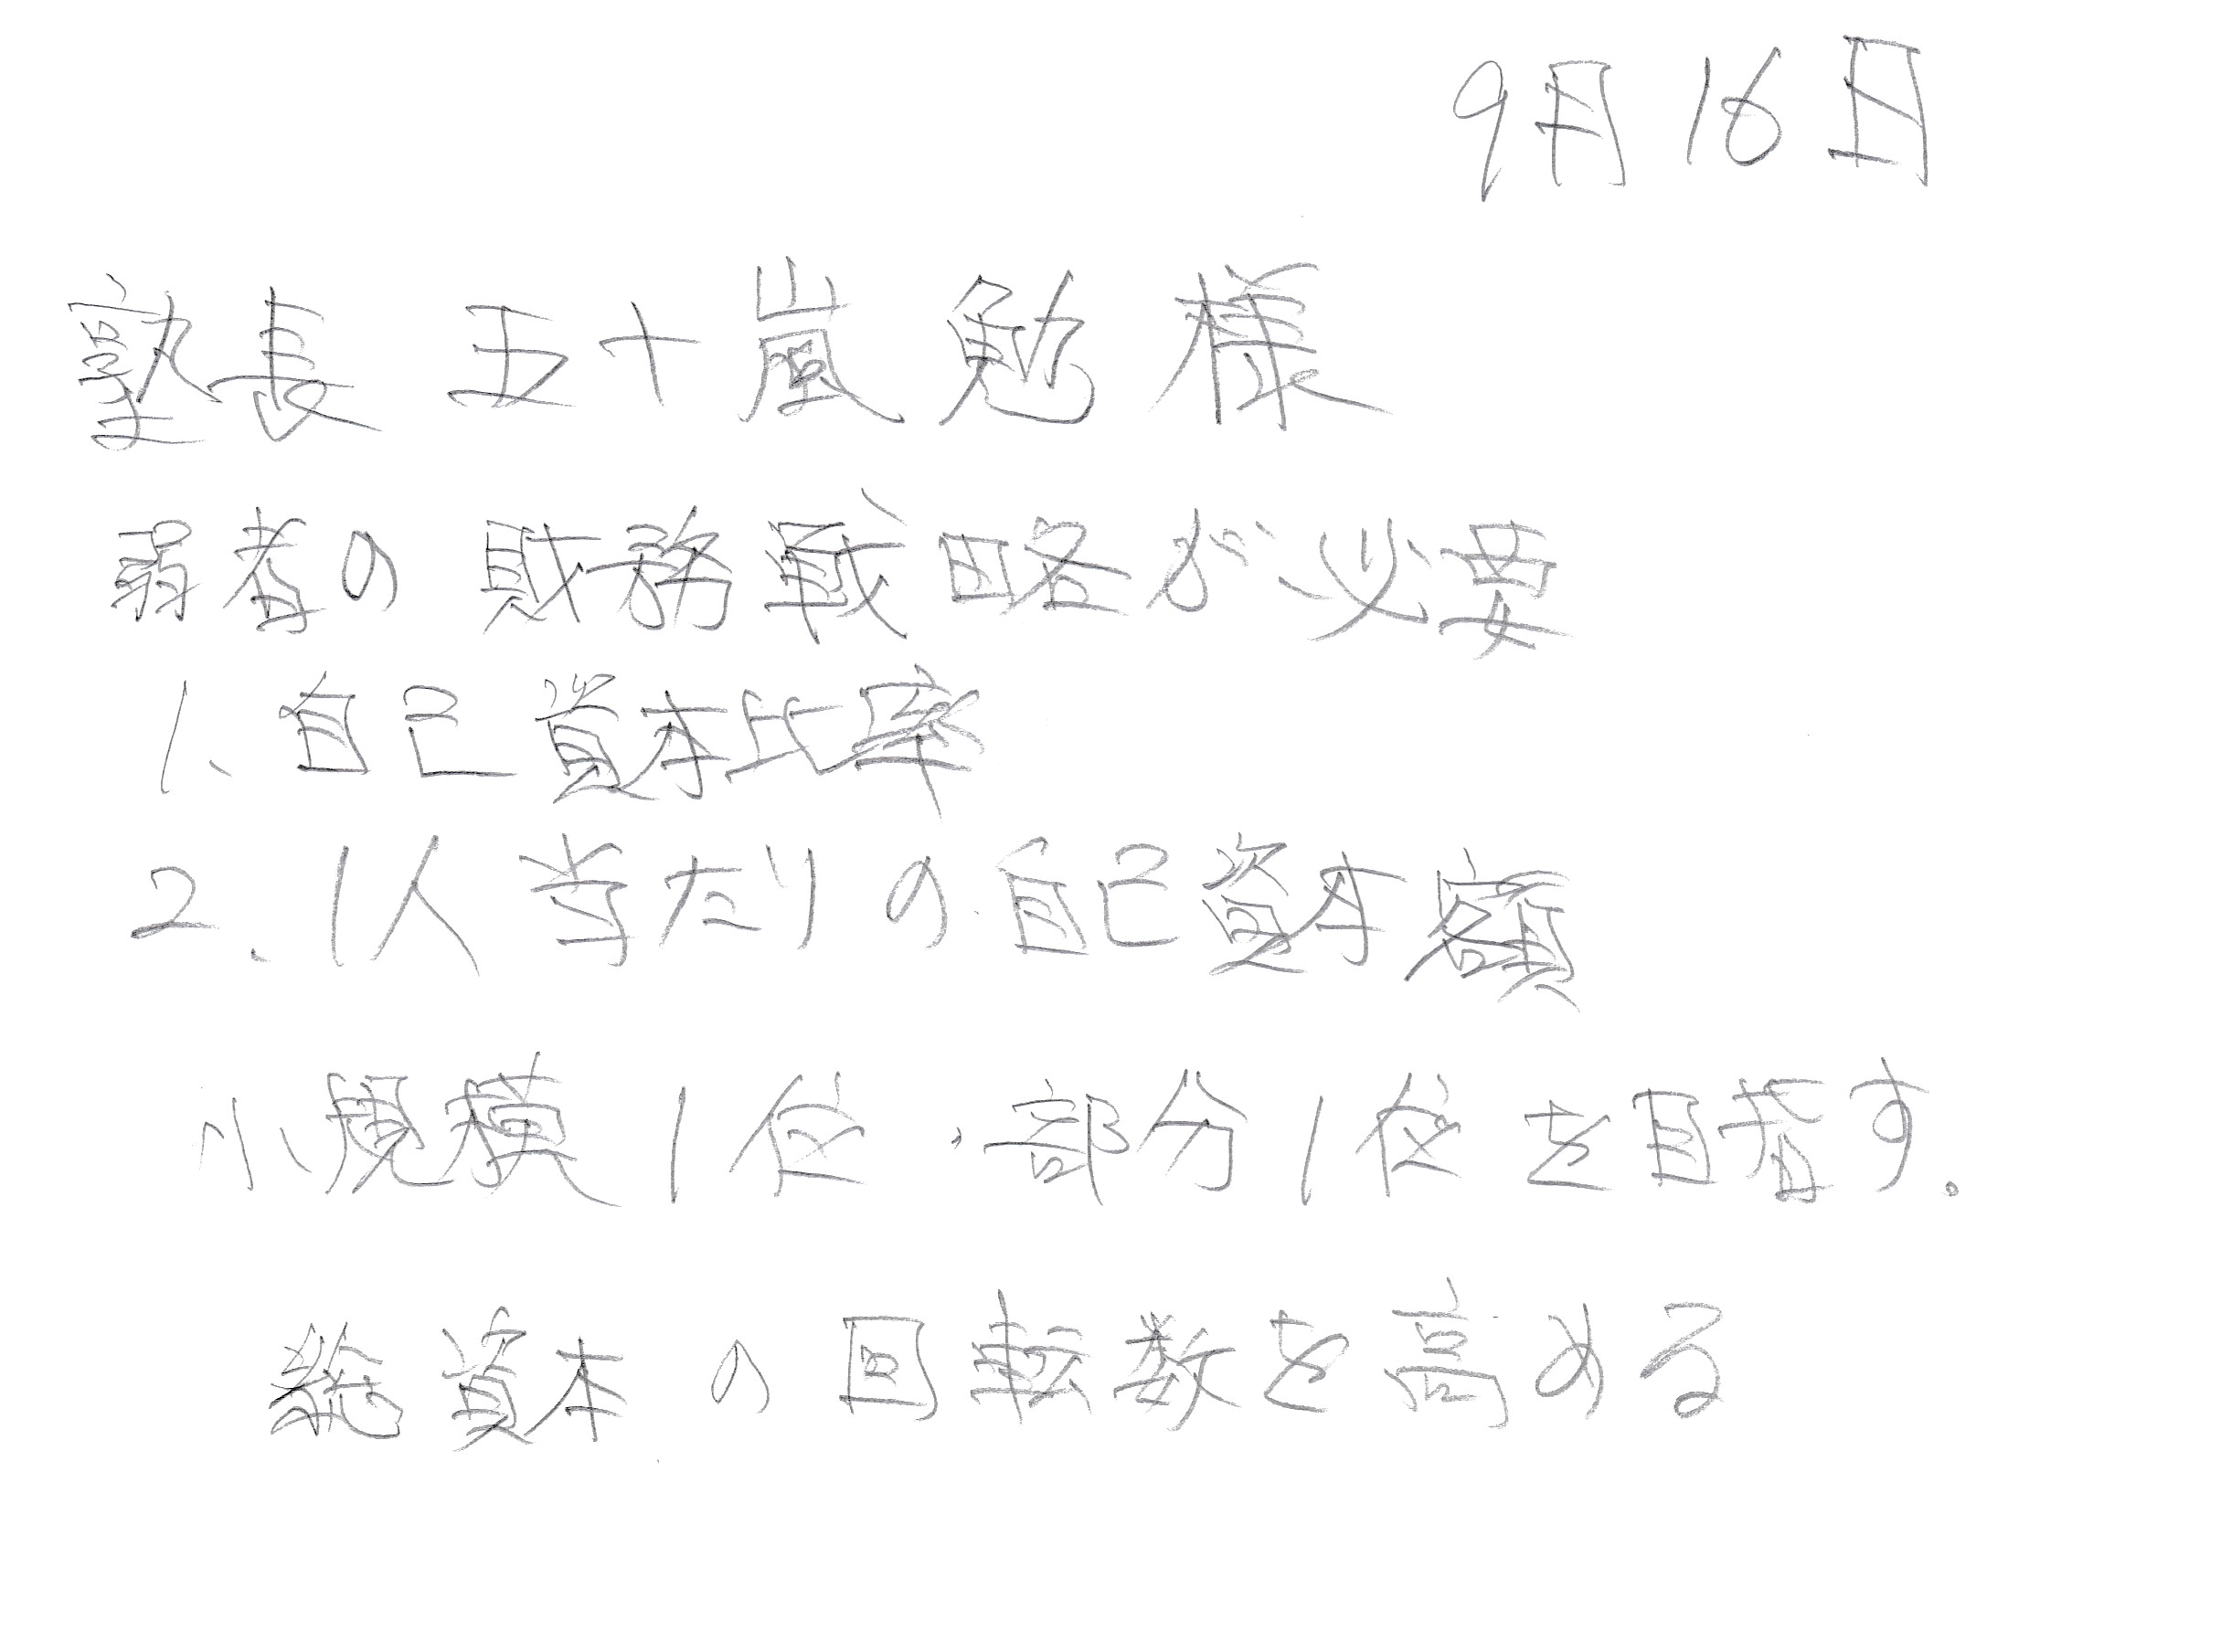 9月16日
塾長 五十嵐勉様
弱者の財務戦略が必要
1、自己資本比率
2、1人当たりの自己資本額
小規模1位・部分1位を目指す。
総資本の回転数を高める